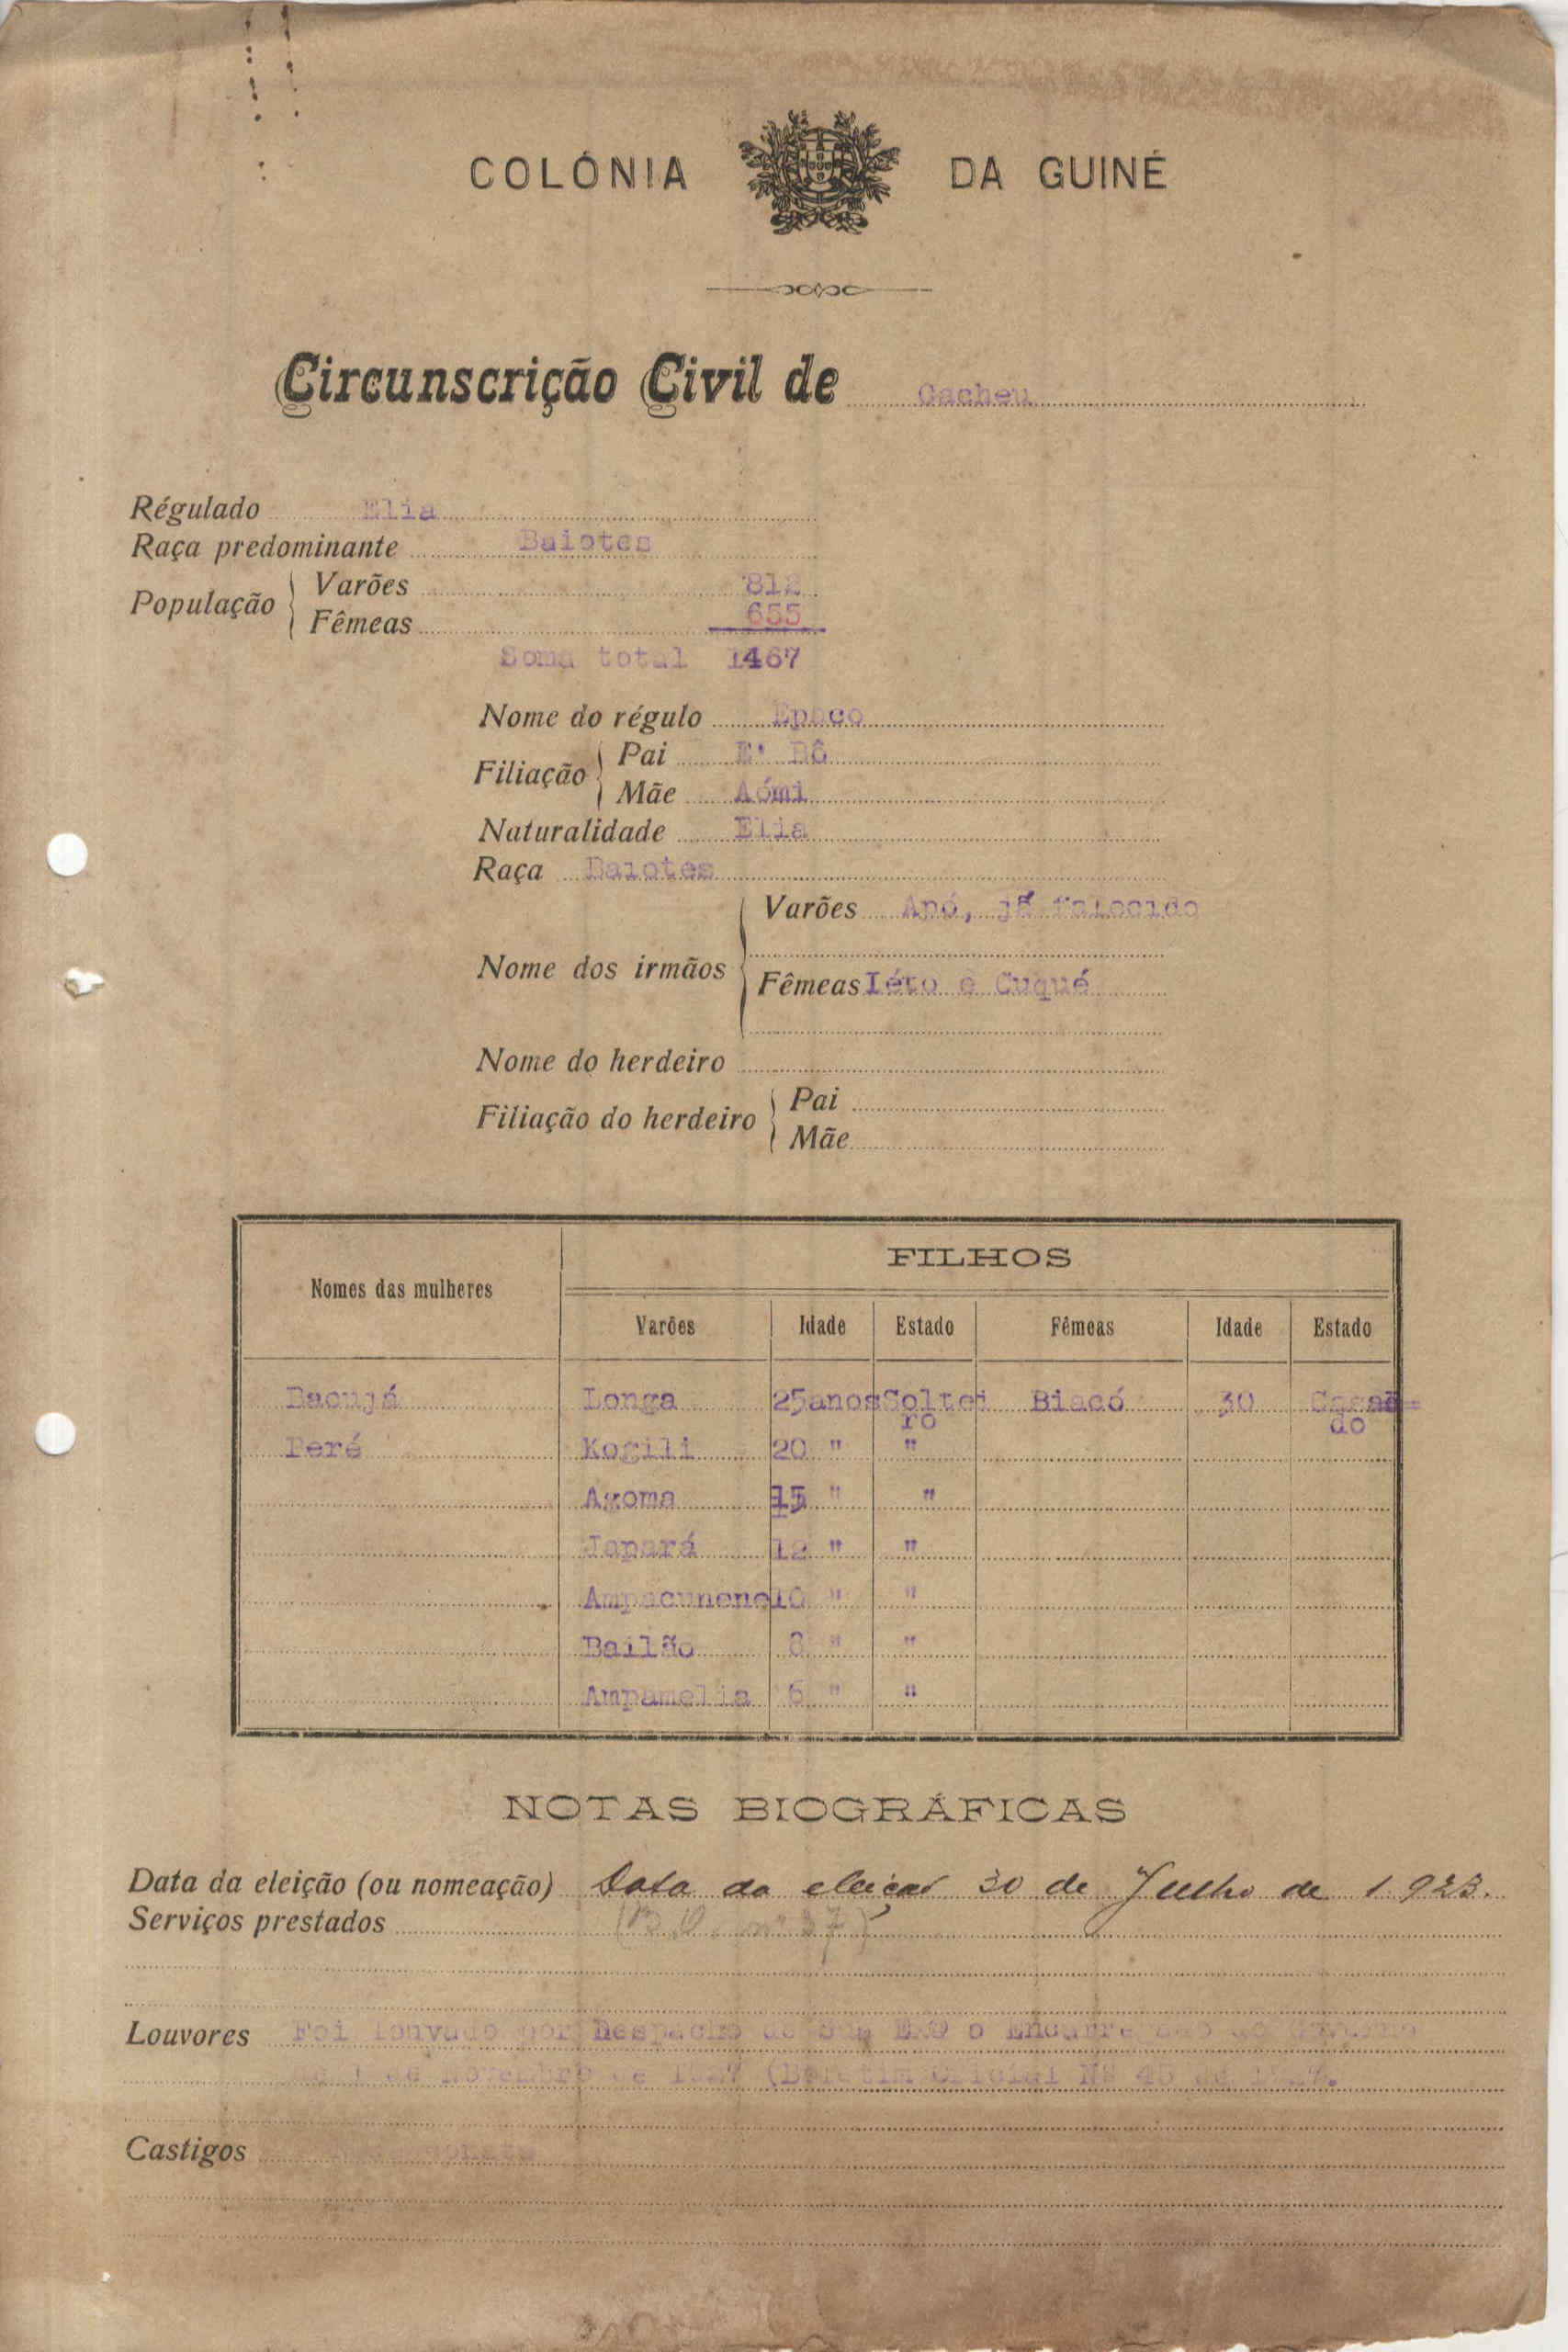 COLÓNIA DA GUINÉ
Circunscrição Civil de Cacheu
Régulado Elia
Raça predominante Baiotes
População Varões 812
Fêmeas 655
Soma total 1467
Nome do régulo
Filiação Pai E' Bô
Mãe Aómi
Naturalidade Elia
Raça Baiotes
Nome dos irmãos Varões Apó, já falecido
Fêmeas Iéto e Cuqué
Nome do herdeiro
Filiação do herdeiro Pai
Mãe
Nomes das mulheres FILHOS
Varões Idade Estado Fêmeas Idade Estado
Bacujá Longa 25anos Soltei Biacó 30 Casad=
ro do
Peré Kogili 20 " "
Agoma 15 " "
Japará 12 " "
Ampacunene 10 " "
Bailão 8 " "
Ampamelia 6 " "
NOTAS BIOGRÁFICAS
Data da eleição (ou nomeação) Data da eleiçao 30 de Julho de 1923.
Serviços prestados (B.O. nº 37)
Louvores Foi louvado por Despacho de Sua Exª o Encarregado do Governo
de Novembro de 1927 (Boletim Oficial Nº 45 de 1927.
Castigos